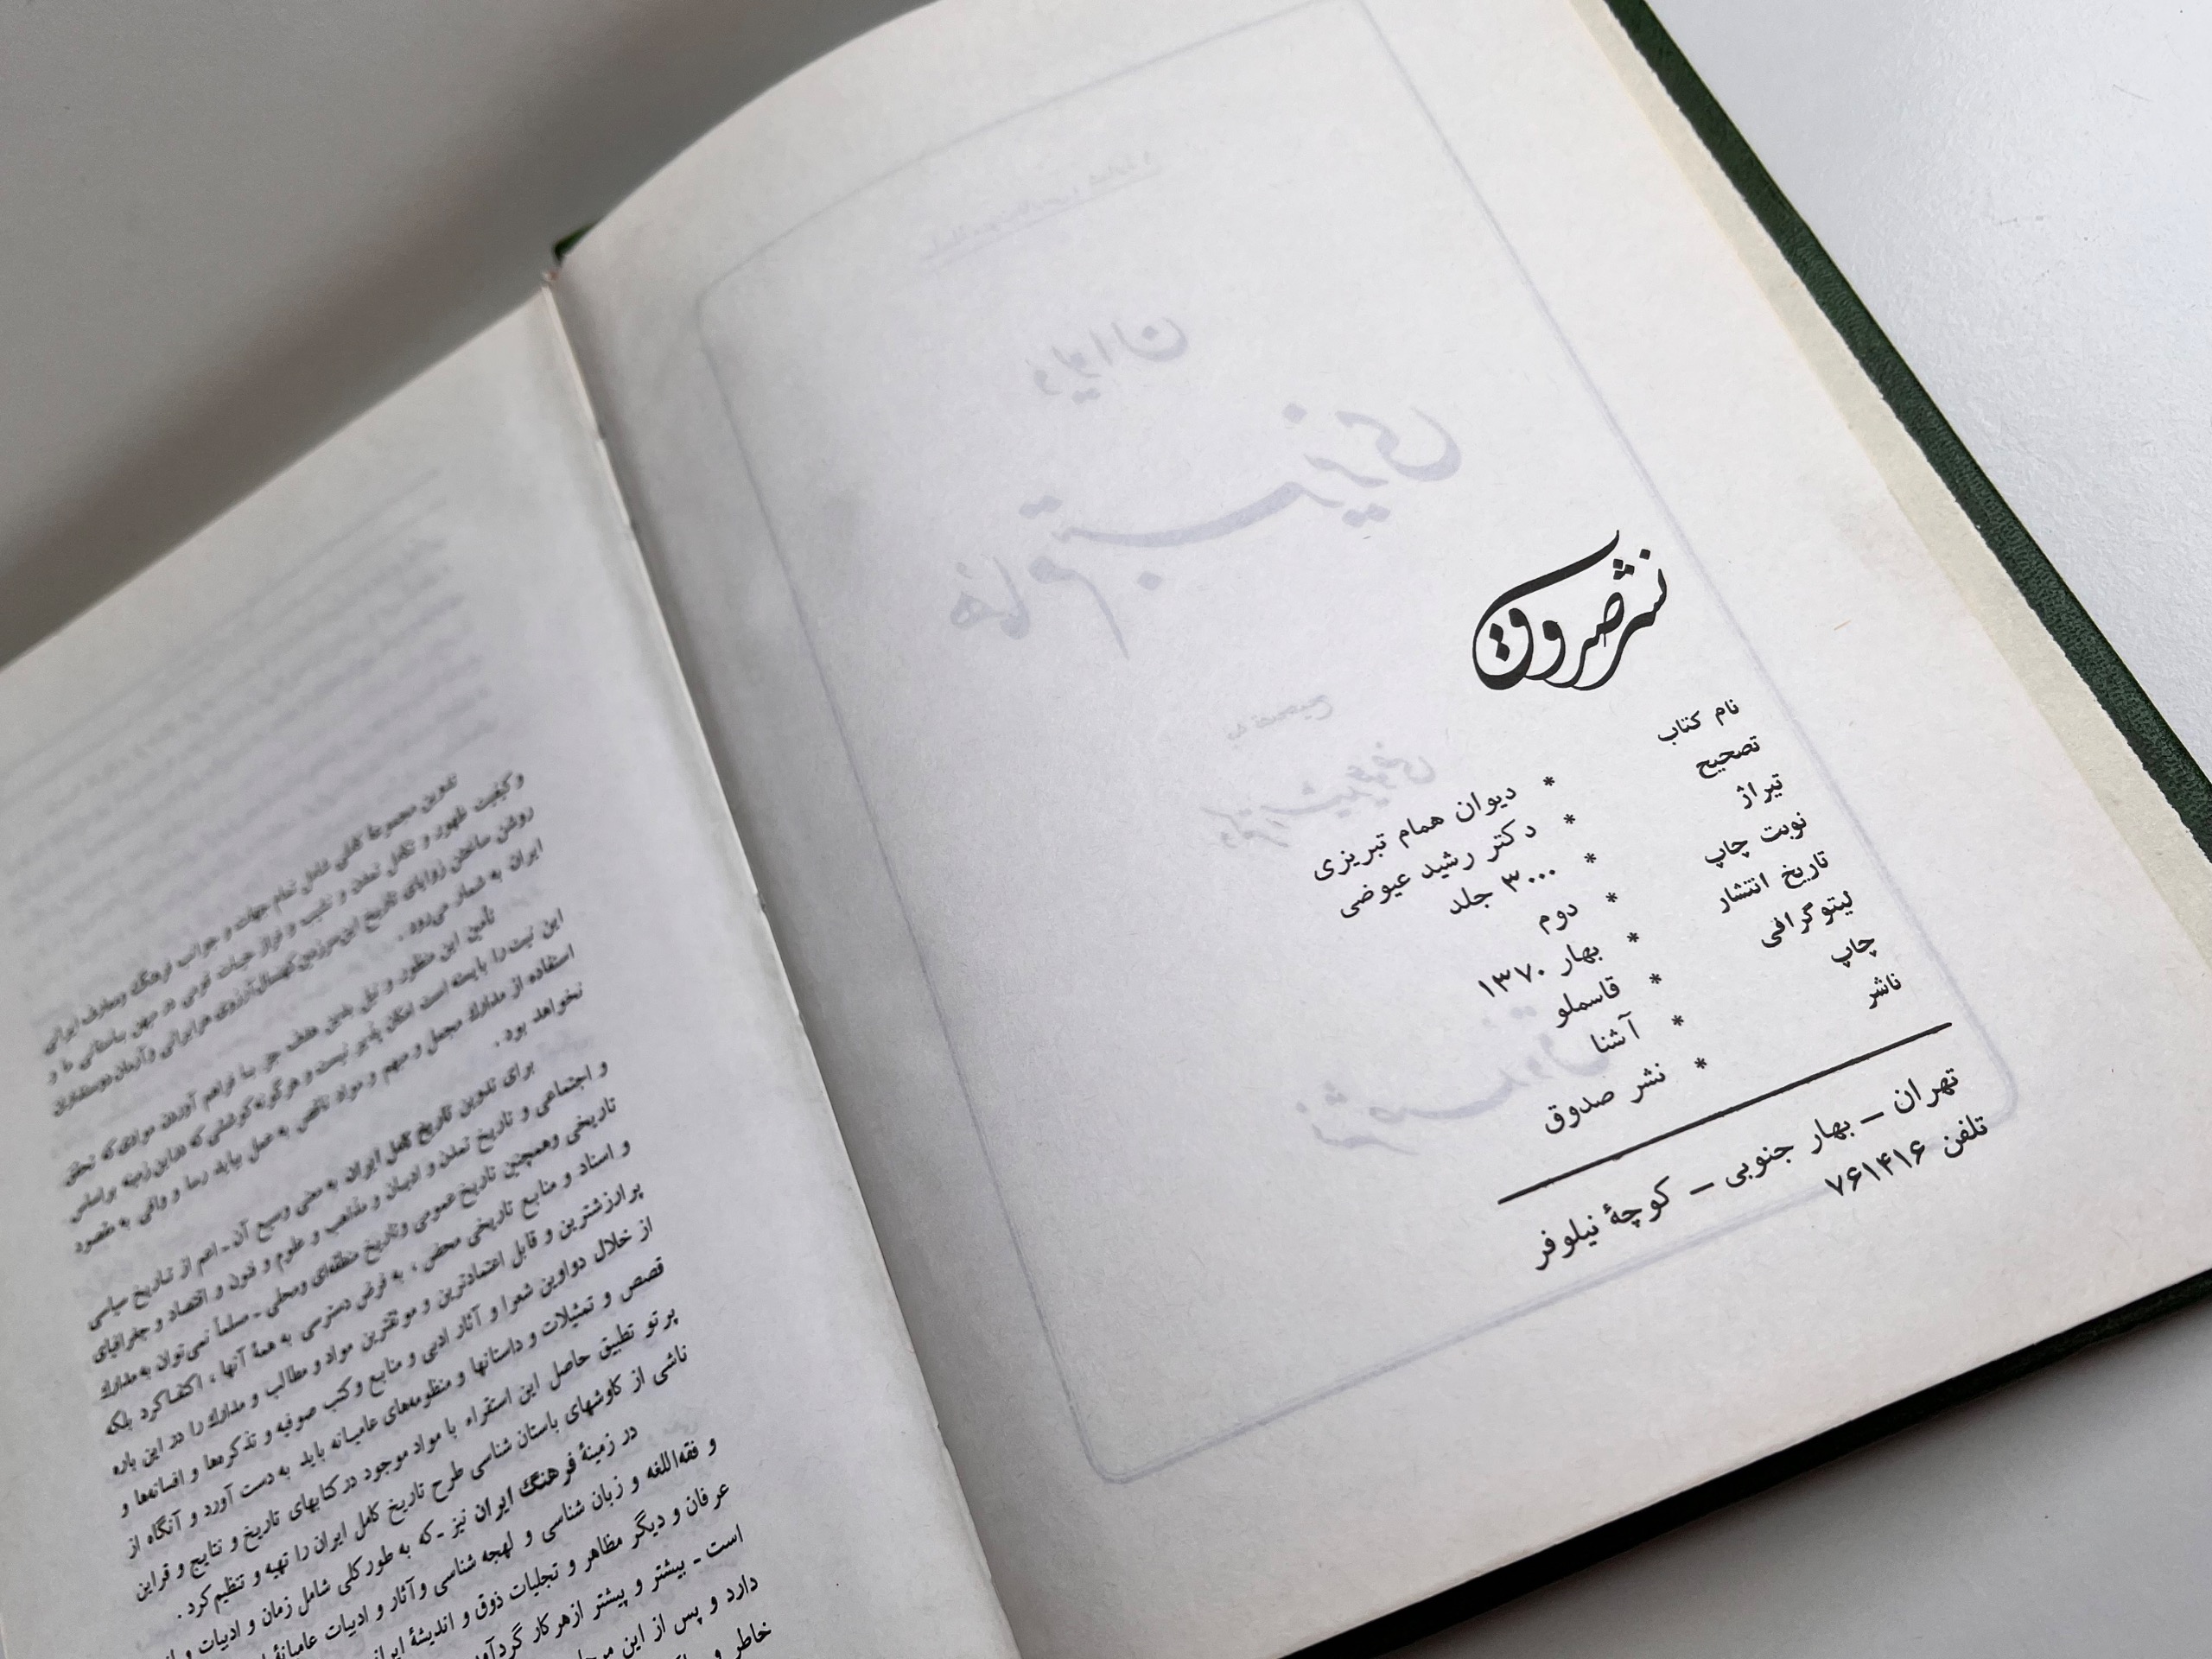 نشر صدوق
نام کتاب * دیوان همام تبریزی
تصحیح * دکتر رشید عیوضی
تیراژ * ۳۰۰۰ جلد
نوبت چاپ * دوم
تاریخ انتشار * بهار ۱۳۷۰
لیتوگرافی * قاسملو
چاپ * آشنا
ناشر * نشر صدوق
تهران – بهار جنوبی – کوچهٔ نیلوفر
تلفن ۷۶۱۴۱۶
تدوین مجموعهٔ کاملی شامل تمام جهات و جوانب فرهنگ و معارف ایرانی
و کیفیت ظهور و تکامل تمدن و نشیب و فراز حیات قومی در میهن باستانی ما و
روشن ساختن زوایای تاریخ این سرزمین کهنسال آرزوی هر ایرانی و آرمان دوستداران
ایران به شمار می‌رود .
تأمین این منظور و نیل بدین هدف جز با فراهم آوردن موادی که تحقق
این نیت را بایسته است امکان پذیر نیست و هرگونه کوششی که در این زمینه بر اساس
استفاده از مدارک مجمل و مبهم و مواد ناقص به عمل بیاید رسا و وافی به مقصود
نخواهد بود .
برای تدوین تاریخ کامل ایران به معنی وسیع آن ـ اعم از تاریخ سیاسی
و اجتماعی و تاریخ تمدن و ادیان و مذاهب و علوم و فنون و اقتصاد و جغرافیای
تاریخی و همچنین تاریخ عمومی و تاریخ منطقه‌ای و محلی ـ مسلماً نمی‌توان به مدارک
و اسناد و منابع تاریخی محض ، به فرض دسترسی به همهٔ آنها ، اکتفا کرد بلکه
پرارزشترین و قابل اعتمادترین و موثقترین مواد و مطالب و مدارک را در این باره
از خلال دواوین شعرا و آثار ادبی و منابع و کتب صوفیه و تذکره‌ها و افسانه‌ها و
قصص و تمثیلات و داستانها و منظومه‌های عامیانه باید به دست آورد و آنگاه از
پرتو تطبیق حاصل این استقراء با مواد موجود در کتابهای تاریخ و نتایج و قراین
ناشی از کاوشهای باستان شناسی طرح تاریخ کامل ایران را تهیه و تنظیم کرد .
در زمینهٔ فرهنگ ایران نیز ـ که به طور کلی شامل زمان و ادبیات و
و فقه‌اللغه و زبان شناسی و لهجه شناسی و آثار و ادبیات عامیانهٔ
عرفان و دیگر مظاهر و تجلیات ذوق و اندیشهٔ
است ـ بیشتر و پیشتر از هر کار
دارد و پس از این
خاطر و